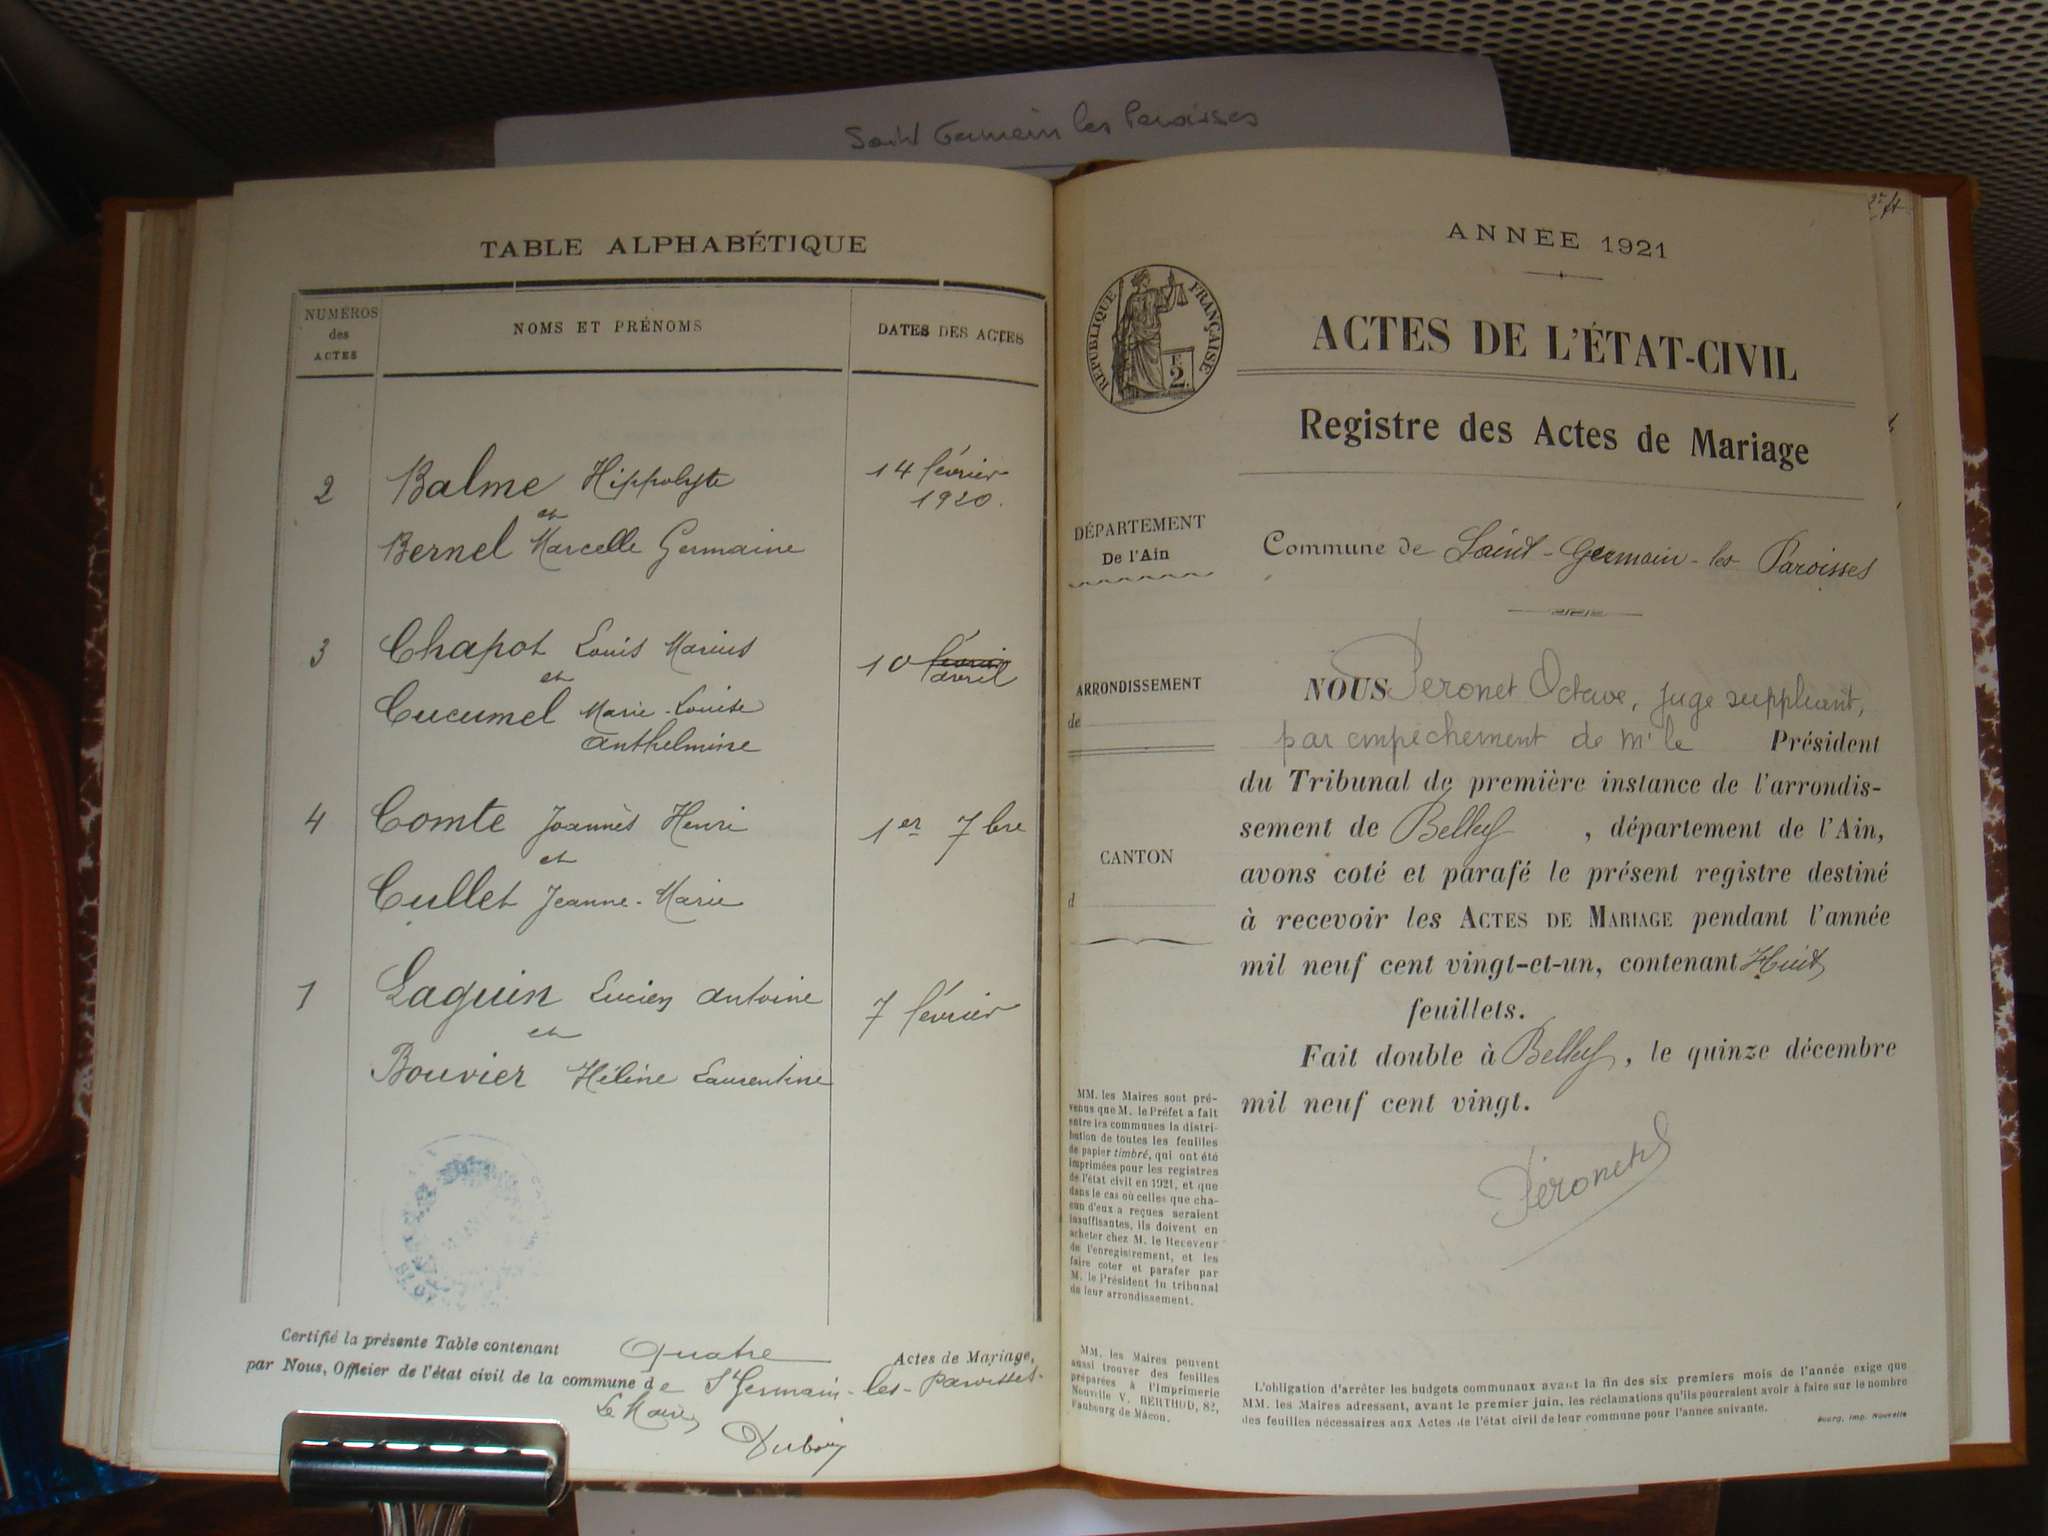 Saint Germain les Paroisses
TABLE ALPHABÉTIQUE
NUMÉROS
des
ACTES
NOMS ET PRÉNOMS
DATES DES ACTES
2 Balme Hippolyte 14 février
et 1920.
Bernel Marcelle Germaine
3 Chapot Louis Marius 10 février
et avril
Cucumel Marie-Louise
Anthelmine
4 Comte Joannès Henri 1er 7bre
et
Cullet Jeanne-Marie
1 Laguin Lucien Antoine 7 février
et
Bouvier Hélène Laurentine
Certifié la présente Table contenant Quatre Actes de Mariage,
par Nous, Officier de l'état civil de la commune de St Germain-les-Paroisses.
Le Maire
ANNÉE 1921
RÉPUBLIQUE FRANÇAISE
2
ACTES DE L'ÉTAT-CIVIL
Registre des Actes de Mariage
DÉPARTEMENT
De l'Ain
ARRONDISSEMENT
de
CANTON
d
Commune de Saint-Germain-les Paroisses
NOUS Peronet Octave, juge suppléant,
par empêchement de Mr le Président
du Tribunal de première instance de l'arrondis-
sement de Belley, département de l'Ain,
avons coté et parafé le présent registre destiné
à recevoir les ACTES DE MARIAGE pendant l'année
mil neuf cent vingt-et-un, contenant Huit
feuillets.
Fait double à Belley, le quinze décembre
mil neuf cent vingt.
Péronet
MM. les Maires sont pré-
venus que M. le Préfet a fait
entre les communes la distri-
bution de toutes les feuilles
de papier timbré, qui ont été
imprimées pour les registres
de l'état civil en 1921, et que
dans le cas où celles que cha-
cun d'eux a reçues seraient
insuffisantes, ils doivent en
acheter chez M. le Receveur
de l'enregistrement, et les
faire coter et parafer par
M. le Président du tribunal
de leur arrondissement.
MM. les Maires peuvent
aussi trouver des feuilles
préparées à l'Imprimerie
Nouvelle V. BERTHOD, 82,
Faubourg de Mâcon.
L'obligation d'arrêter les budgets communaux avant la fin des six premiers mois de l'année exige que
MM. les Maires adressent, avant le premier juin, les réclamations qu'ils pourraient avoir à faire sur le nombre
des feuilles nécessaires aux Actes de l'état civil de leur commune pour l'année suivante.
Bourg, Imp. Nouvelle